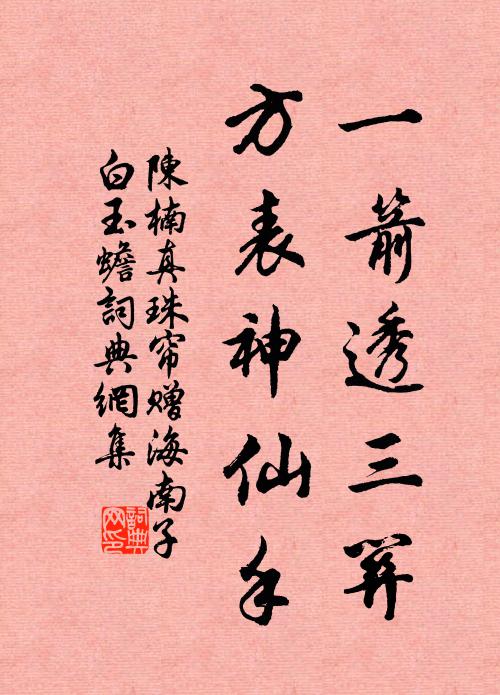 一箭透三关
方表神仙手
陳楠真珠帘赠海南子
白玉蟾詞典網集
詞典网印